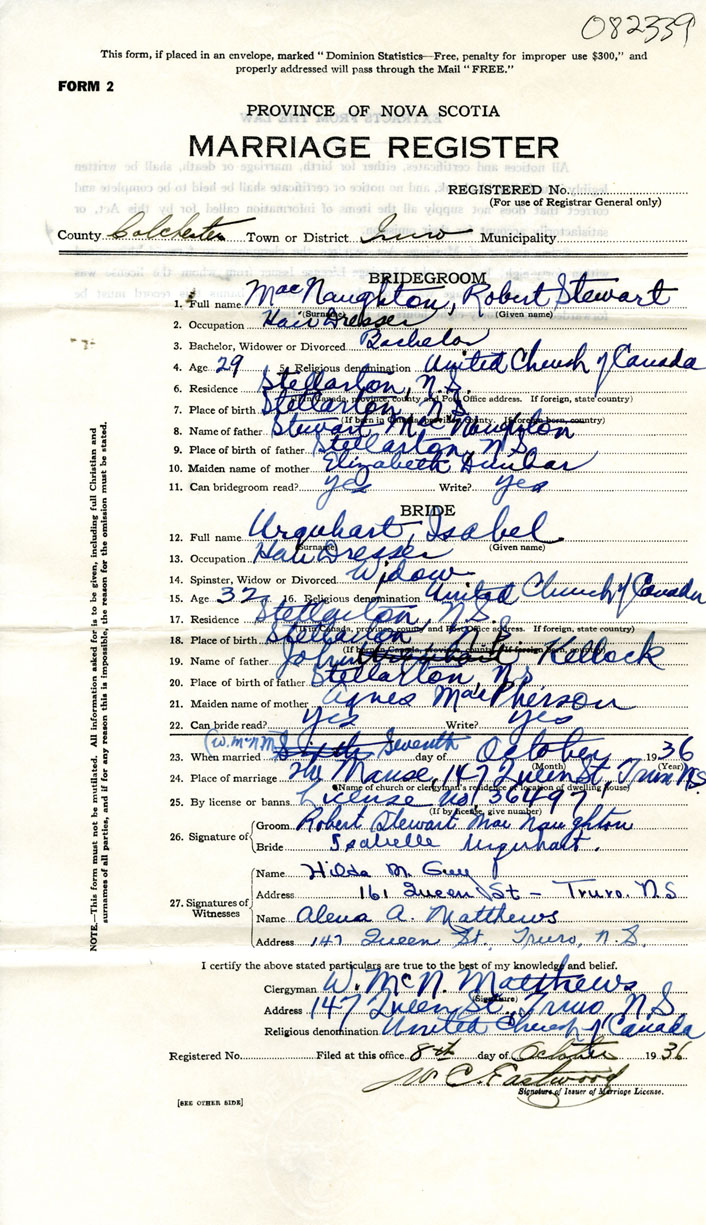 082339
This form, if placed in an envelope, marked "Dominion Statistics—Free, penalty for improper use $300," and
properly addressed will pass through the Mail "FREE."
FORM 2
PROVINCE OF NOVA SCOTIA
MARRIAGE REGISTER
REGISTERED No.
(For use of Registrar General only)
County Colchester Town or District Truro Municipality
BRIDEGROOM
1. Full name MacNaughton, Robert Stewart
(Surname) (Given name)
2. Occupation Hair Dresser
3. Bachelor, Widower or Divorced Bachelor
4. Age 29 5. Religious denomination United Church of Canada
6. Residence Stellarton, N.S.
(If in Canada, province, county and Post Office address. If foreign, state country)
7. Place of birth Stellarton, N.S.
(If born in Canada, province, county. If foreign born, country)
8. Name of father Stewart MacNaughton
9. Place of birth of father Stellarton, N.S.
10. Maiden name of mother Elizabeth Dunbar
11. Can bridegroom read? yes Write? yes
BRIDE
12. Full name Urquhart, Isabel
(Surname) (Given name)
13. Occupation Hair Dresser
14. Spinster, Widow or Divorced Widow
15. Age 32 16. Religious denomination United Church of Canada
17. Residence Stellarton, N.S.
(If in Canada, province, county and Post Office address. If foreign, state country)
18. Place of birth Stellarton, N.S.
(If born in Canada, province, county. If foreign born, country)
19. Name of father John Kellock
20. Place of birth of father Stellarton, N.S.
21. Maiden name of mother Agnes MacPherson
22. Can bride read? yes Write? yes
(W. McN M.)
23. When married Sixth Seventh day of October 1936
(Month) (Year)
24. Place of marriage The Manse, 147 Queen St, Truro N.S.
(Name of church or clergyman's residence or location of dwelling house)
25. By license or banns License No. 36497
(If by license, give number)
26. Signature of
Groom Robert Stewart MacNaughton
Bride Isabelle Urquhart.
27. Signatures of Witnesses
Name Hilda M. Guy
Address 161 Queen St – Truro. N.S
Name Alena A. Matthews
Address 147 Queen St. Truro, N.S.
I certify the above stated particulars are true to the best of my knowledge and belief.
Clergyman W. McN. Matthews
(Signature)
Address 147 Queen St. Truro, N.S.
Religious denomination United Church of Canada
Registered No. Filed at this office 8th day of October 1936
W C. Eastwood
Signature of Issuer of Marriage License.
[SEE OTHER SIDE]
NOTE.—This form must not be mutilated. All information asked for is to be given, including full Christian and
surnames of all parties, and if for any reason this is impossible, the reason for the omission must be stated.